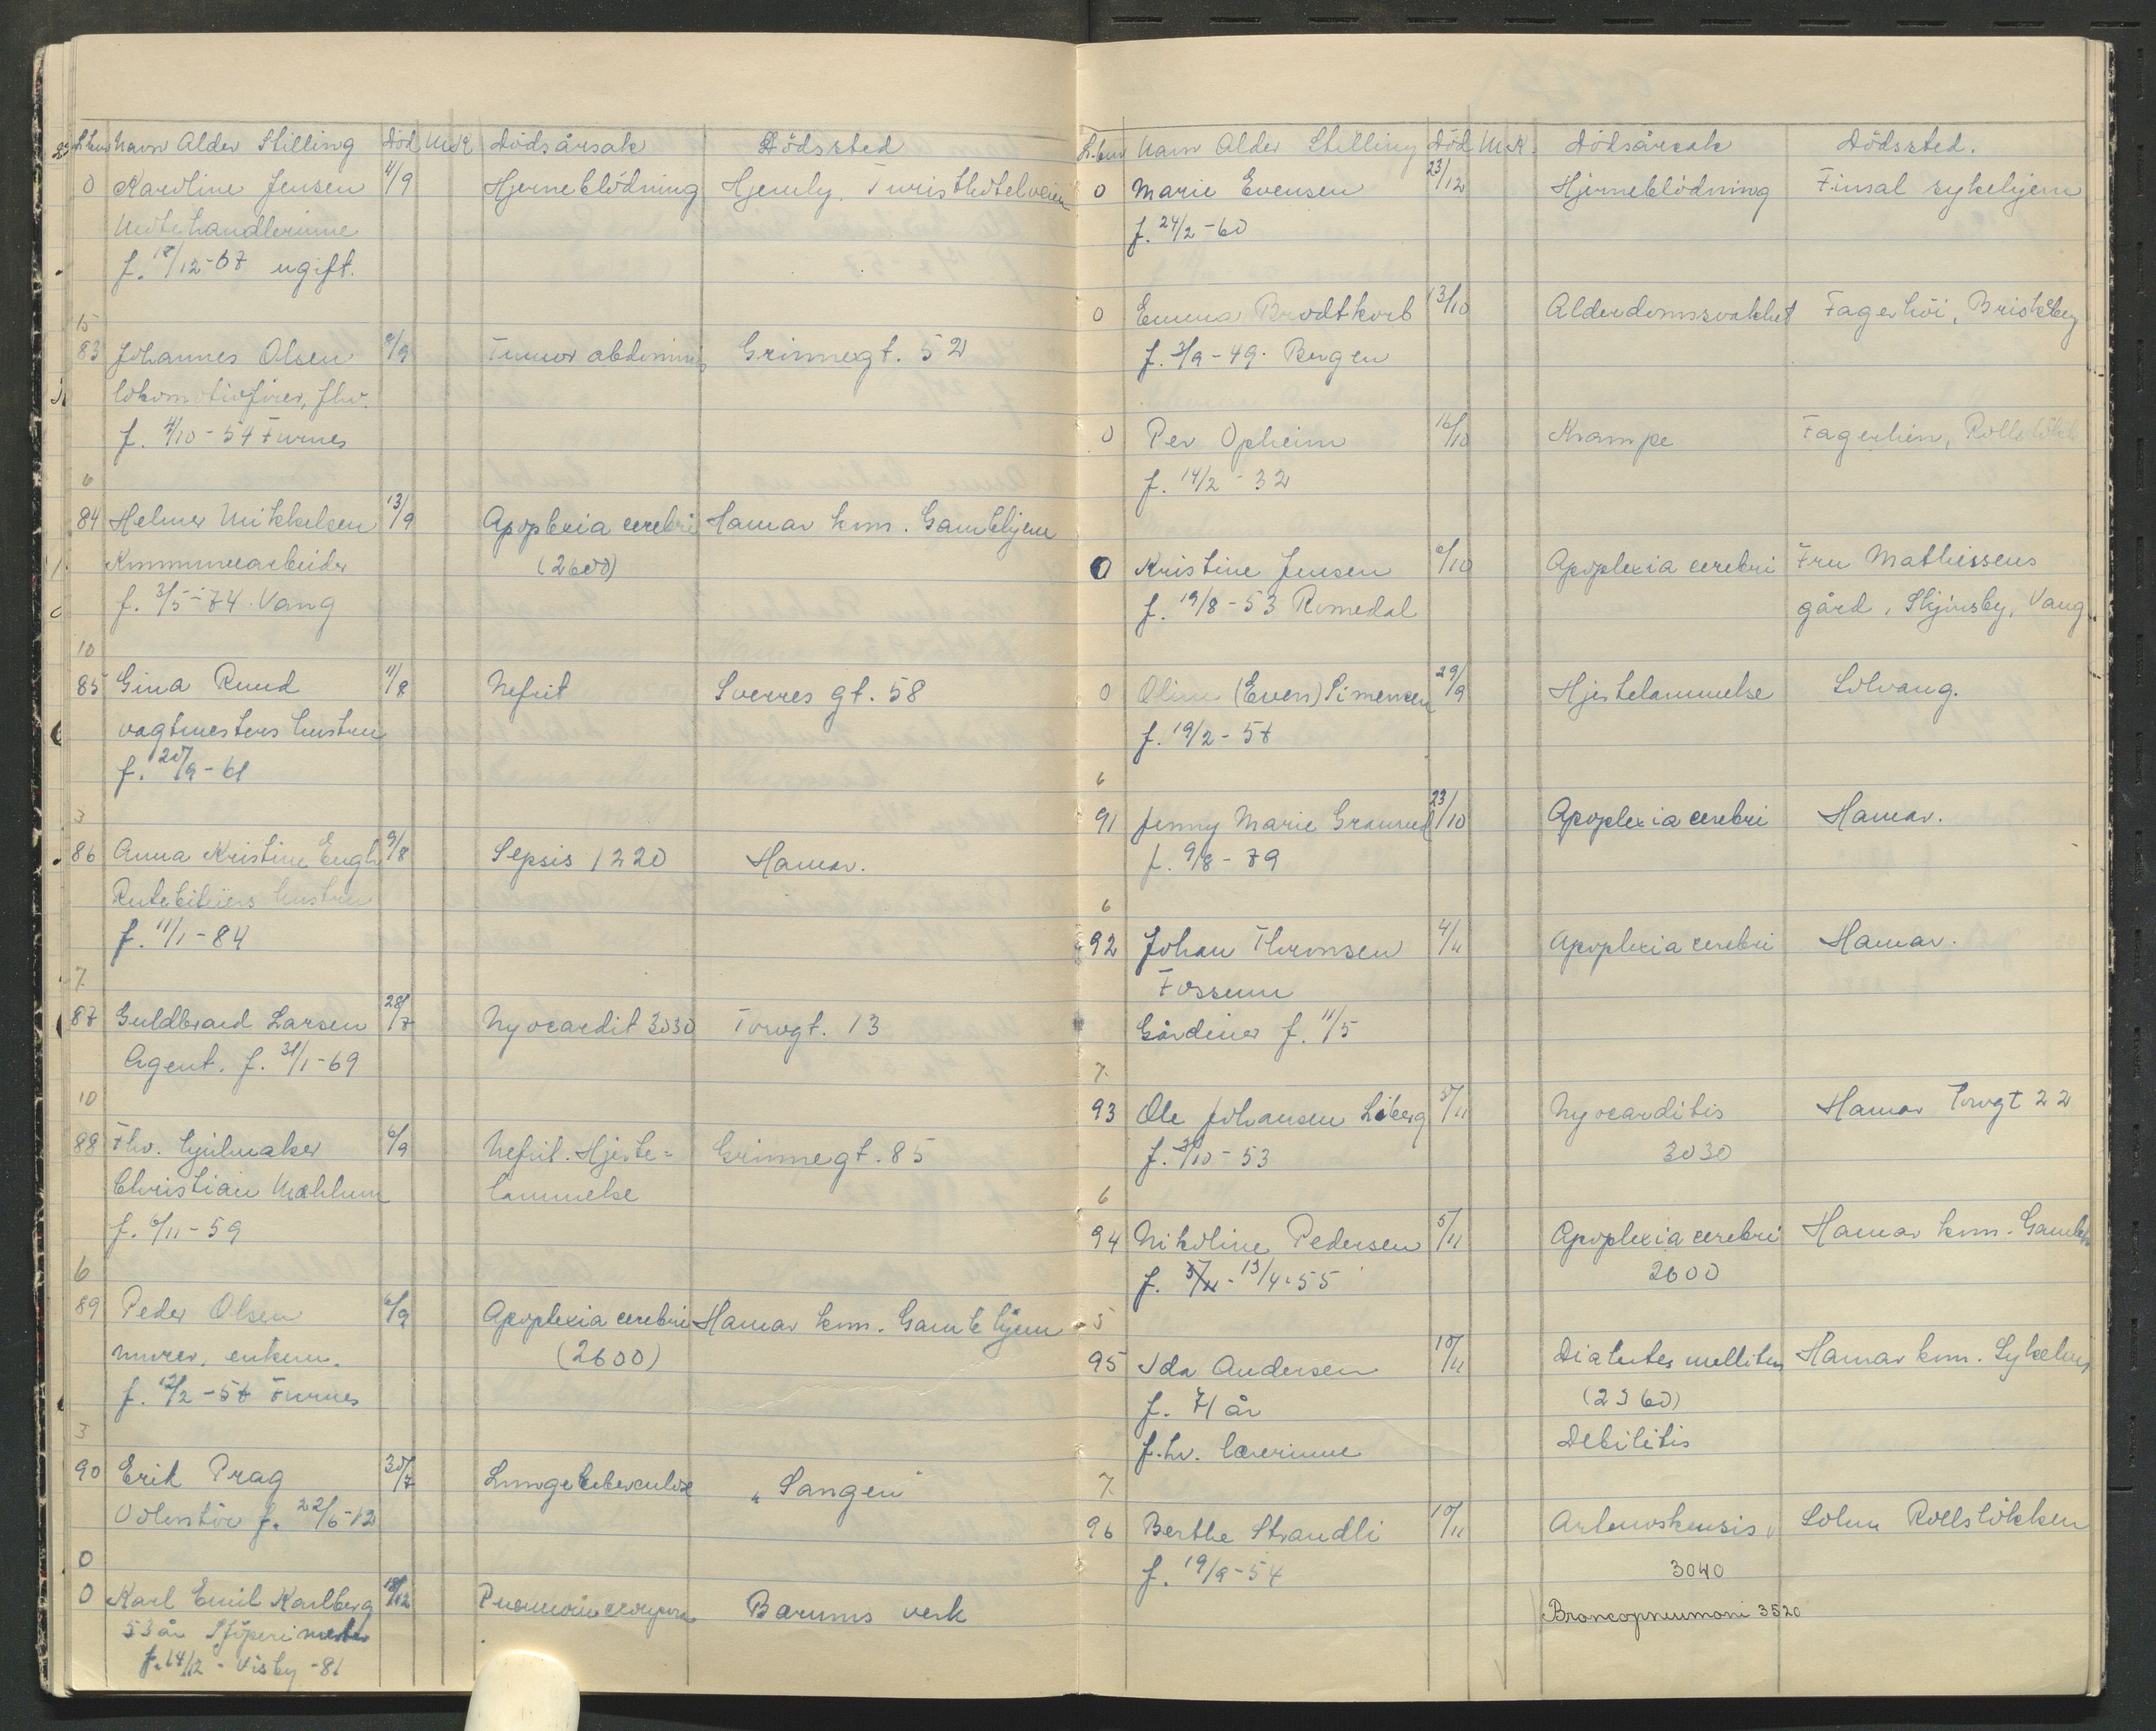 L.nr Navn Alder Stilling Död M K Dödsårsak Dödssted
0 Karoline Jensen 11/9 Hjerneblödning Hjemly. Turisthotelveien
Motehandlerinne
f. 18/12-67 ugift.
15
83 Johannes Olsen 9/9 Tumor abdominis Grönnegt. 52
lokomotivförer, fhv.
f. 4/10-54 Furnes
6
84 Helmer Mikkelsen 13/9 Apoplexia cerebri Hamar kom. Gamlehjem
Kommunearbeider (2600)
f. 3/5-74. Vang
10
85 Gina Ruud 11/8 Nefrit Sverres gt. 58
vagtmesters hustru
f. 20/9-61
3
86 Anna Kristine Engh 9/8 Sepsis 1220 Hamar.
Rutebileiers hustru
f. 11/1-84
7.
87 Guldbrand Larsen 28/7 Myocardit 3030 Torvgt. 13
Agent. f. 31/1-69
10
88 Fhv. hjulmaker 6/9 Nefrit. Hjerte= Grönnegt. 85
Christian Mæhlum lammelse
f. 6/11-59
6
89 Peder Olsen 6/9 Apoplexia cerebri Hamar kom. Gamlehjem
murer, enkem. (2600)
f. 12/2-57 Furnes
3
90 Erik Prag 30/7 Lungetuberculose "Sangen"
Volontör f. 22/6-12
0
0 Karl Emil Karlberg 18/12 Pneumonia Bærums verk
53 år Stöperimester
f. 14/12 - Visby -81
L.nr Navn Alder Stilling Död M K. Dödsårsak Dödssted.
0 Marie Evensen 23/12 Hjerneblödning Finsal sykehjem
f. 24/2-60
0 Emma Brodtkorb 13/10 Alderdomssvakhet Fagerhöi, Briskeby
f. 3/9-49. Bergen
0 Per Opheim 16/10 Krampe Fagerlien, Rollslökk
f. 14/2-32
0 Kristine Jensen 6/10 Apoplexia cerebri Fru Mathissens
f. 19/8-53 Romedal gård, Skjönsby, Vang
0 Oline (Even) Simensen 29/9 Hjertelammelse Solvang.
f. 19/2-57
6
91 Jenny Marie Granrud 23/10 Apoplexia cerebri Hamar.
f. 9/8-79
6
92 Johan Thronsen 4/11 Apoplexia cerebri Hamar.
Fossum
Gårdeier f. 11/5
7.
93 Ole Johansen Liberg 5/11 Myocarditis Hamar Torvgt 22
f. 3/10-53 3030
6
94 Nikoline Pedersen 5/11 Apoplexia cerebri Hamar kom. Gamleh
f. 13/4-55 2600
5
95 Ida Andersen 10/11 Diabetes mellitus Hamar kom. Sykehus
f. 71 år (2360)
f.hv. lærerinne Debilitis
7.
96 Berthe Strandli 10/11 Solum Rollslökken
f. 19/9-54 3040
Broncopneumoni 3520